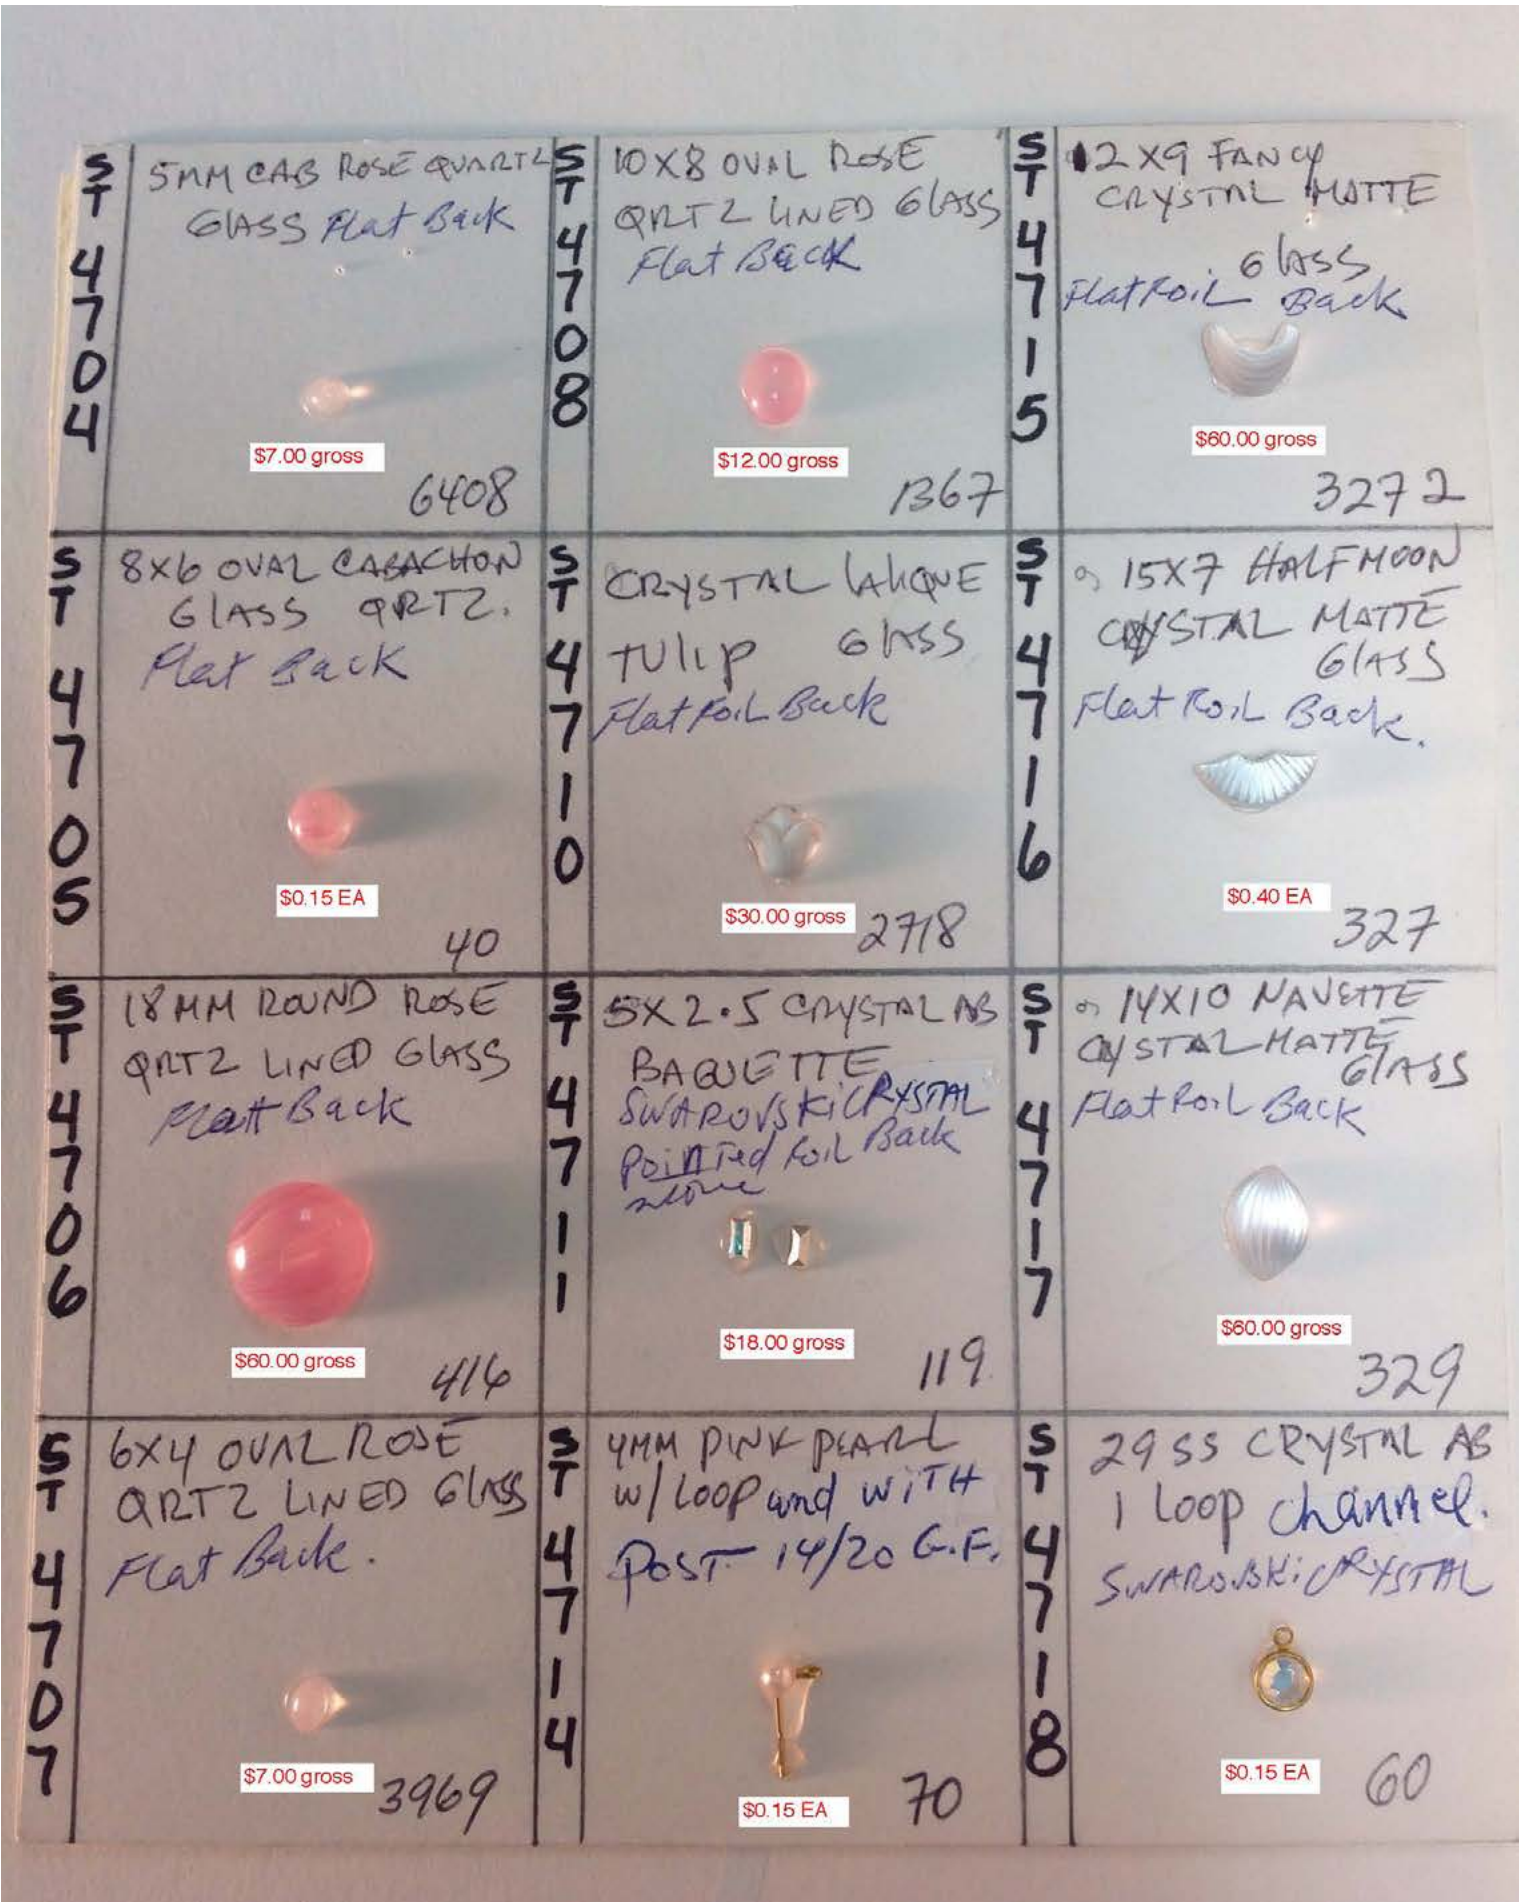 ST 4704
5MM CAB ROSE QUARTZ
GLASS Flat Back
$7.00 gross
6408
ST 4708
10X8 OVAL ROSE
QRTZ LINED GLASS
Flat Back
$12.00 gross
1367
ST 4715
12X9 FANCY
CRYSTAL MATTE
GLASS
Flat Foil Back
$60.00 gross
3272
ST 4705
8X6 OVAL CABACHON
GLASS QRTZ.
Flat Back
$0.15 EA
40
ST 4710
CRYSTAL LALIQUE
TULIP GLASS
Flat Foil Back
$30.00 gross
2718
ST 4716
15X7 HALFMOON
CRYSTAL MATTE
GLASS
Flat Foil Back.
$0.40 EA
327
ST 4706
18MM ROUND ROSE
QRTZ LINED GLASS
Flatt Back
$60.00 gross
416
ST 4711
5X2.5 CRYSTAL AB
BAQUETTE
SWAROVSKI CRYSTAL
Pointed Foil Back
stone
$18.00 gross
119
ST 4717
14X10 NAVETTE
CRYSTAL MATTE
GLASS
Flat Foil Back
$60.00 gross
329
ST 4707
6X4 OVAL ROSE
QRTZ LINED GLASS
Flat Back.
$7.00 gross
3969
ST 4714
4MM PINK PEARL
W/ LOOP and WITH
POST 14/20 G.F.
$0.15 EA
70
ST 4718
29SS CRYSTAL AB
1 LOOP channel.
SWAROVSKI CRYSTAL
$0.15 EA
60